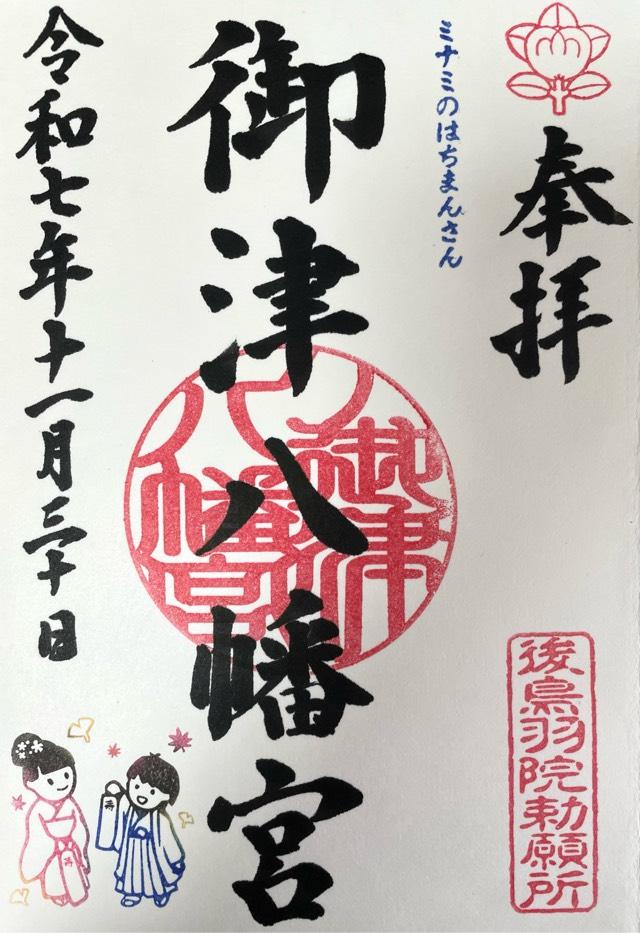 奉拝
後鳥羽院勅願所
ミナミのはちまんさん
御津八幡宮
御津
八幡宮
令和七年十一月三十日